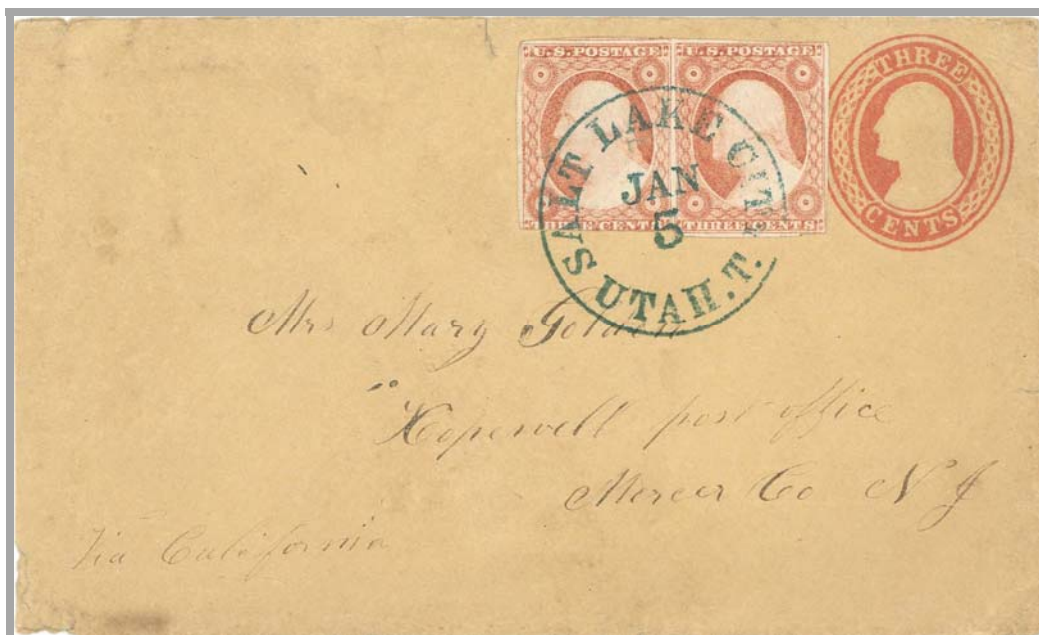 U.S.POSTAGE U.S.POSTAGE THREE
THREE CENTS THREE CENTS CENTS
SALT LAKE CITY
JAN
5
UTAH.T.
Mrs Mary Golden
Hopewell post office
Mercer Co N J
Via California